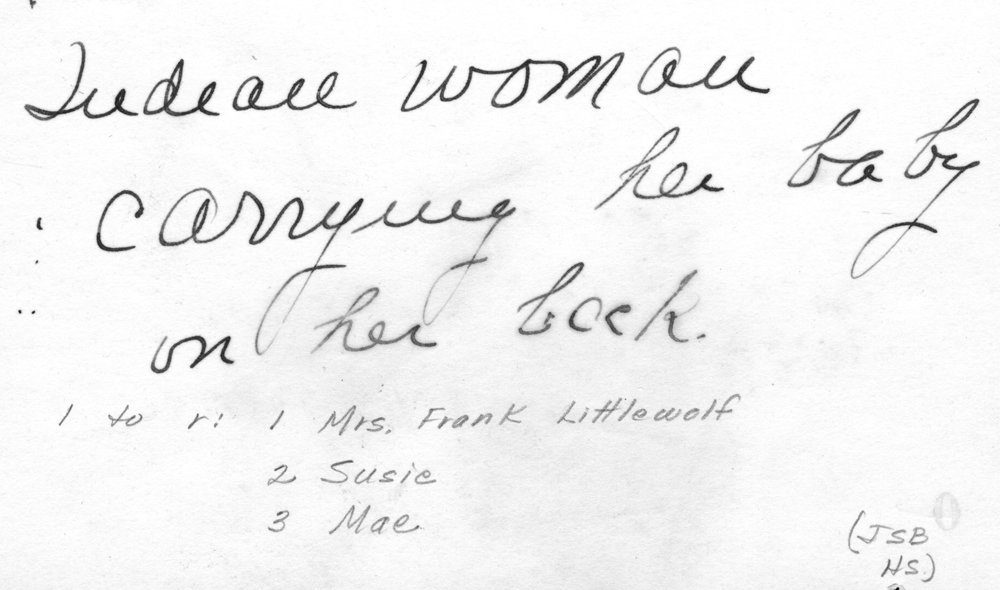 Indian woman
carrying her baby
on her back.
l to r: 1 Mrs. Frank Littlewolf
2 Susie
3 Mae
(JSB
HS)